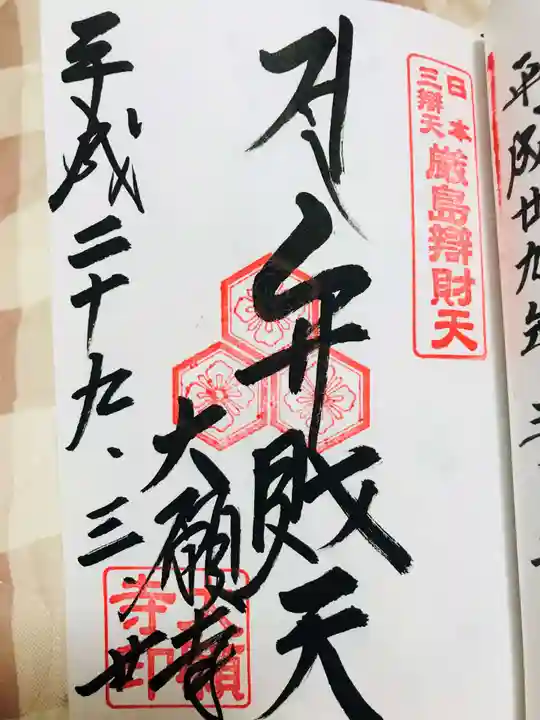 日本
三辨天
厳島辯財天
弁財天
大願寺
大願
寺印
平成二十九、三、廿
平成廿九年
三